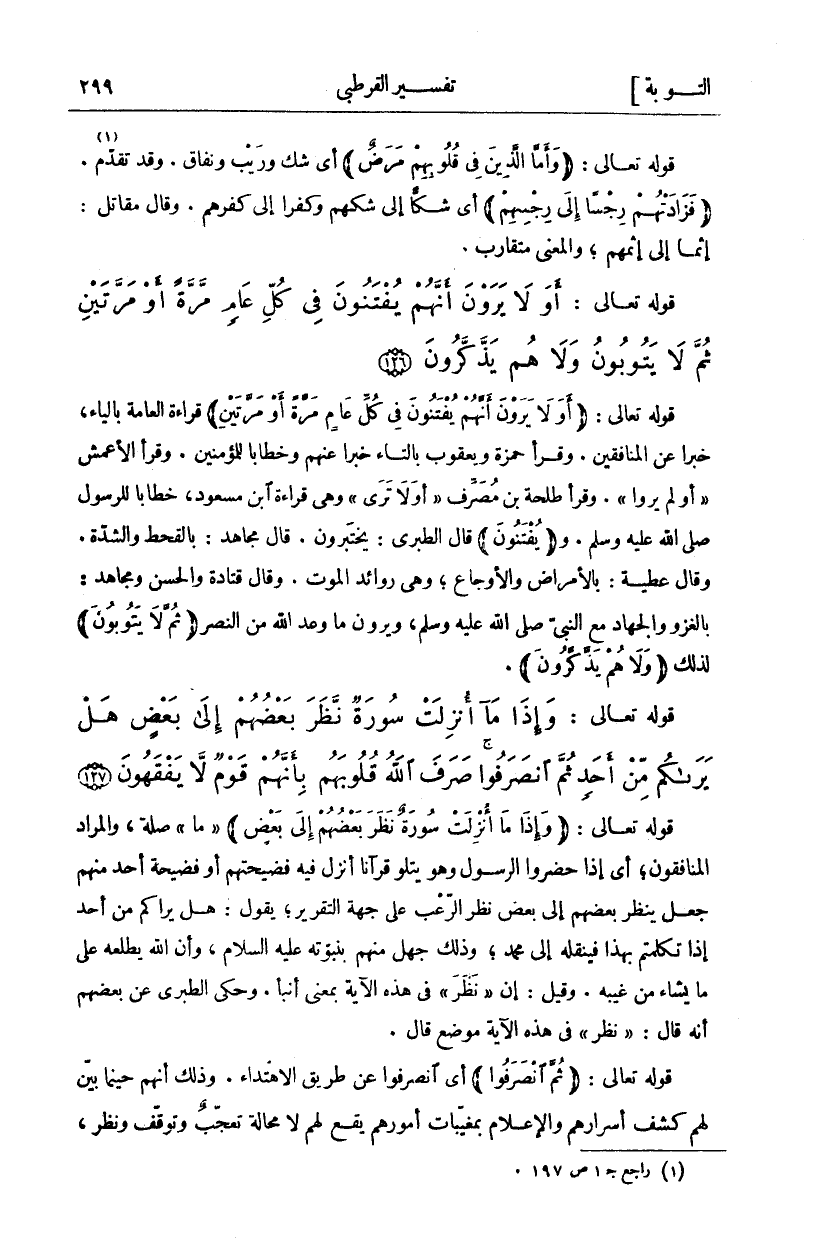 التـــوبة ] تفســـير القرطبى ٢٩٩
(١)
قوله تعـالى : ﴿ وَأَمَّا الَّذِينَ فِى قُلُوبِهِمْ مَرَضٌ ﴾ أى شك ورَيْب ونفاق . وقد تقدّم .
﴿ فَزَادَتْهُـمْ رِجْسًا إِلَى رِجْسِهِمْ ﴾ أى شـكًّا إلى شكهم وكفرا إلى كفرهم . وقال مقاتل :
إثمـا إلى إثمهم ؛ والمعنى متقارب .
قوله تعـالى : أَوَ لَا يَرَوْنَ أَنَّهُمْ يُفْتَنُونَ فِى كُلِّ عَامٍ مَّرَّةً أَوْ مَرَّتَيْنِ
ثُمَّ لَا يَتُوبُونَ وَلَا هُم يَذَّكَّرُونَ ﴿١٢٦﴾
قوله تعالى : ﴿ أَوَ لَا يَرَوْنَ أَنَّهُمْ يُفْتَنُونَ فِى كُلِّ عَامٍ مَرَّةً أَوْ مَرَّتَيْنِ ﴾ قراءة العامة بالياء،
خبرا عن المنافقين . وقـرأ حمزة ويعقوب بالتـاء خبرا عنهم وخطابا للمؤمنين . وقرأ الأعمش
« أو لم يروا » . وقرأ طلحة بن مُصَرِّف « أوَلَا تَرَى » وهى قراءة آبن مسعود، خطابا للرسول
صلى الله عليه وسلم . و﴿ يُفْتَنُونَ ﴾ قال الطبرى : يختبرون . قال مجاهد : بالقحط والشدّة .
وقال عطيـة : بالأمراض والأوجاع ؛ وهى روائد الموت . وقال قتادة والحسن ومجاهد :
بالغزو والجهاد مع النبىّ صلى الله عليه وسلم، ويرون ما وعد الله من النصر ﴿ ثُمَّ لَا يَتُوبُونَ ﴾
لذلك ﴿ وَلَا هُمْ يَذَّكَّرُونَ ﴾ .
قوله تعـالى : وَإِذَا مَآ أُنزِلَتْ سُورَةٌ نَّظَرَ بَعْضُهُمْ إِلَىٰ بَعْضٍ هَـلْ
يَرَىٰكُم مِّنْ أَحَدٍ ثُمَّ ٱنصَرَفُواۚ صَرَفَ ٱللَّهُ قُلُوبَهُم بِأَنَّهُمْ قَوْمٌ لَّا يَفْقَهُونَ ﴿١٢٧﴾
قوله تعـالى : ﴿ وَإِذَا مَا أُنْزِلَتْ سُورَةٌ نَظَرَ بَعْضُهُمْ إِلَى بَعْضٍ ﴾ « ما » صلة ، والمراد
المنافقون؛ أى إذا حضروا الرسـول وهو يتلو قرآنا أنزل فيه فضيحتهم أو فضيحة أحد منهم
جعـل ينظر بعضهم إلى بعض نظر الرّعْب على جهة التقرير؛ يقول : هـل يراكم من أحد
إذا تكلمتم بهذا فينقله إلى محمد ؛ وذلك جهل منهم بنبوّته عليه السلام ، وأن الله يطلعه على
ما يشاء من غيبه . وقيل : إن « نَظَرَ » فى هذه الآية بمعنى أنبأ . وحكى الطبرى عن بعضهم
أنه قال : « نظر » فى هذه الآية موضع قال .
قوله تعالى : ﴿ ثُمَّ ٱنْصَرَفُوا ﴾ أى ٱنصرفوا عن طريق الاهتداء . وذلك أنهم حينما بيّن
لهم كشف أسرارهم والإعـلام بمغيّبات أمورهم يقـع لهم لا محالة تعجّبٌ وتوقّف ونظر ،
(١) راجع جـ ١ ص ١٩٧ .